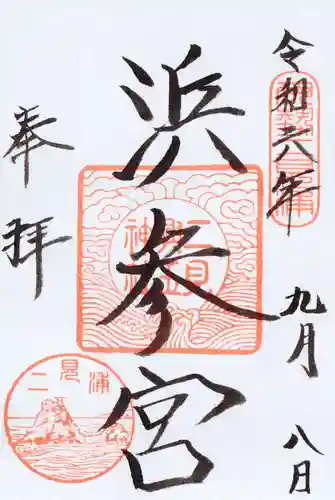 令和六年
九月
八日
浜参宮
奉拝
二見浦